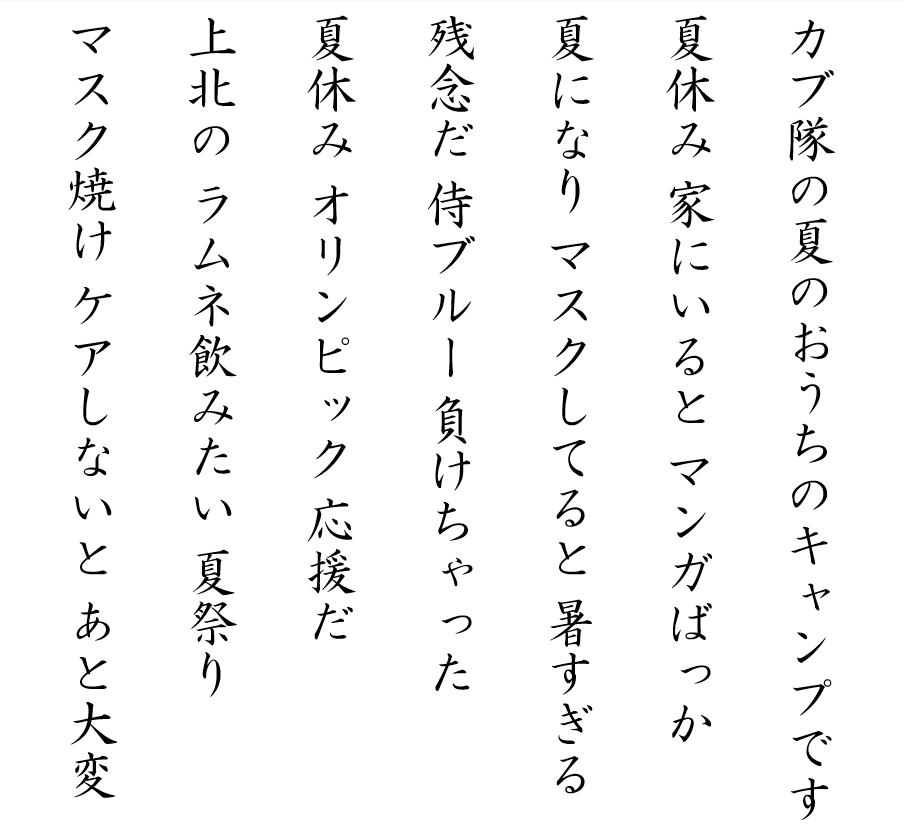 カブ隊の夏のおうちのキャンプです
夏休み 家にいると マンガばっか
夏になり マスクしてると 暑すぎる
残念だ 侍ブルー 負けちゃった
夏休み オリンピック 応援だ
上北の ラムネ飲みたい 夏祭り
マスク焼け ケアしないと あと大変